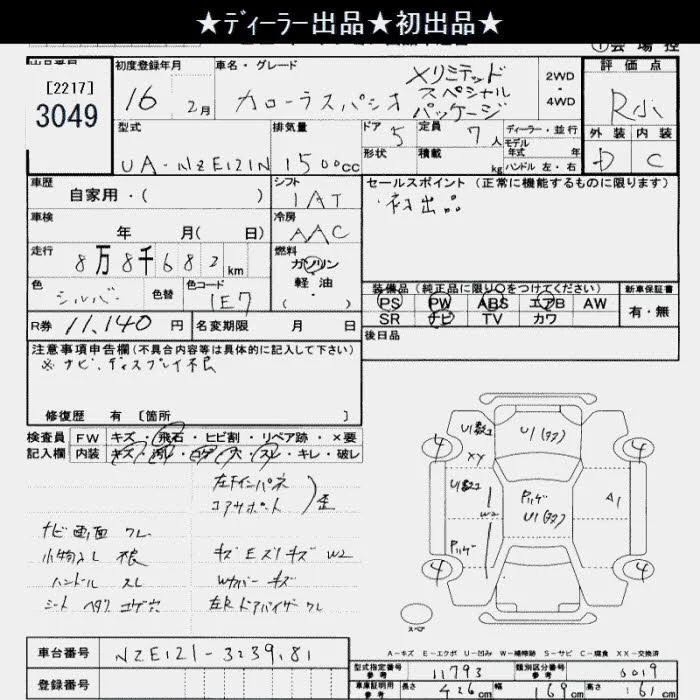 ★ディーラー出品★初出品★
①会場控
[2217]
3049
初度登録年月
16 2月
車名・グレード
カローラスパシオ
Xリミテッド
スペシャル
パッケージ
2WD
・
4WD
評価点
R小
外装 内装
D C
型式
UA-NZE121N
排気量
1500cc
ドア 5
形状
定員 7人
積載 kg
ディーラー・並行
モデル年式 年
ハンドル 左・右
車歴
自家用・( )
シフト
IAT
セールスポイント (正常に機能するものに限ります)
・初出品
車検
年 月( 日)
冷房
AAC
走行
8万8千682km
燃料
ガソリン
軽油
・
( )
色
シルバー
色替
色コード
1E7
装備品 (純正品に限り○をつけてください)
PS PW ABS エアB AW
SR ナビ TV カワ
新車保証書
有・無
R券 11,140円
名変期限 月 日
後日品
注意事項申告欄 (不具合内容等は具体的に記入して下さい)
※ナビ、ディスプレイ不良
修復歴 有 〔箇所 〕
検査員 FW キズ・飛石・ヒビ割・リペア跡・×要
記入欄 内装 キズ・汚レ・コゲ・穴・スレ・キレ・破レ
左F インパネ
コアサポート
歪
ナビ画面 ワレ
小物入レ 不良
キズEズリキズ W2
ハンドル スレ
Wカバー キズ
シート ヘタリ コゲ穴
左R ドアバイザー ワレ
U1数コ
U1(タワ)
XY
4
4
W2
Pハゲ
U1(タワ)
A1
Pハゲ
4
4
スペア
A-キズ E-エクボ U-凹み W-補修跡 S-サビ C-腐食 XX-交換済
車台番号 NZE121-3239181
登録番号
型式指定番号
参考
11793
類別区分番号
参考
0019
車庫証明用
参考
長さ 426cm 幅 169cm 高さ 161cm